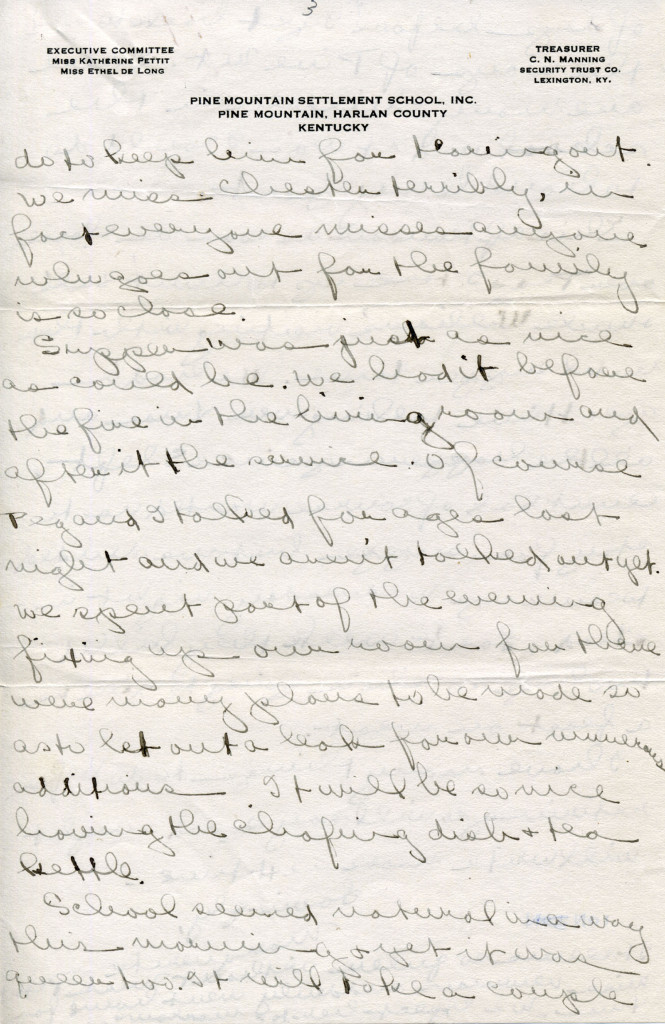 3
EXECUTIVE COMMITTEE
MISS KATHERINE PETTIT
MISS ETHEL DE LONG
TREASURER
C. N. MANNING
SECURITY TRUST CO.
LEXINGTON, KY.
PINE MOUNTAIN SETTLEMENT SCHOOL, INC.
PINE MOUNTAIN, HARLAN COUNTY
KENTUCKY
do to keep him for tearing out.
we miss Chester terribly, in
fact everyone misses anyone
who goes out for the family
is so close.
Supper was just as nice
as could be. we had it before
the fire in the living room and
after it the service. Of course
Peg and I talked for ages last
night and we aren't talked out yet.
we spent part of the evening
fixing up our room for there
were many plans to be made so
as to let out a for our numerous
additions It will be so nice
having the chafing dish & tea
kettle.
School seemed natural in a way
this morning & yet it was
queer too. It will take a couple